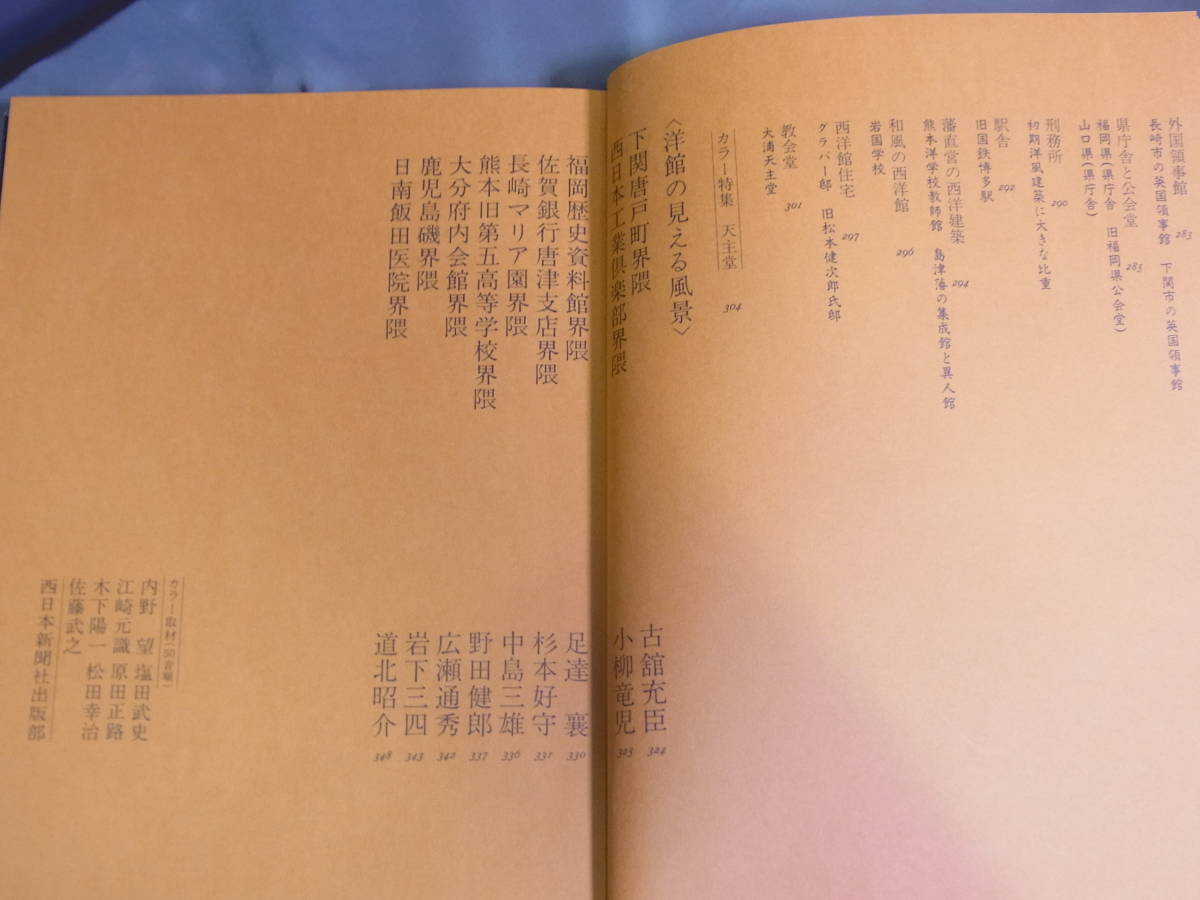 外国領事館 283
長崎市の英国領事館 下関市の英国領事館
県庁舎と公会堂 285
福岡県(県庁舎 旧福岡県公会堂)
山口県(県庁舎)
刑務所 290
初期洋風建築に大きな比重
駅舎 292
旧国鉄博多駅
藩直営の西洋建築 294
熊本洋学校教師館 島津藩の集成館と異人館
和風の西洋館 296
岩国学校
西洋館住宅 297
グラバー邸 旧松本健次郎氏邸
教会堂 301
大浦天主堂
カラー特集 天主堂 304
〈洋館の見える風景〉
下関唐戸町界隈 古舘充臣 324
西日本工業倶楽部界隈 小柳竜児 325
福岡歴史資料館界隈 足達襄 330
佐賀銀行唐津支店界隈 杉本好守 331
長崎マリア園界隈 中島三雄 336
熊本旧第五高等学校界隈 野田健郎 337
大分府内会館界隈 広瀬通秀 342
鹿児島磯界隈 岩下三四 343
日南飯田医院界隈 道北昭介 348
カラー取材(50音順)
内野 望 塩田武史
江崎元識 原田正路
木下陽一 松田幸治
佐藤武之
西日本新聞社出版部